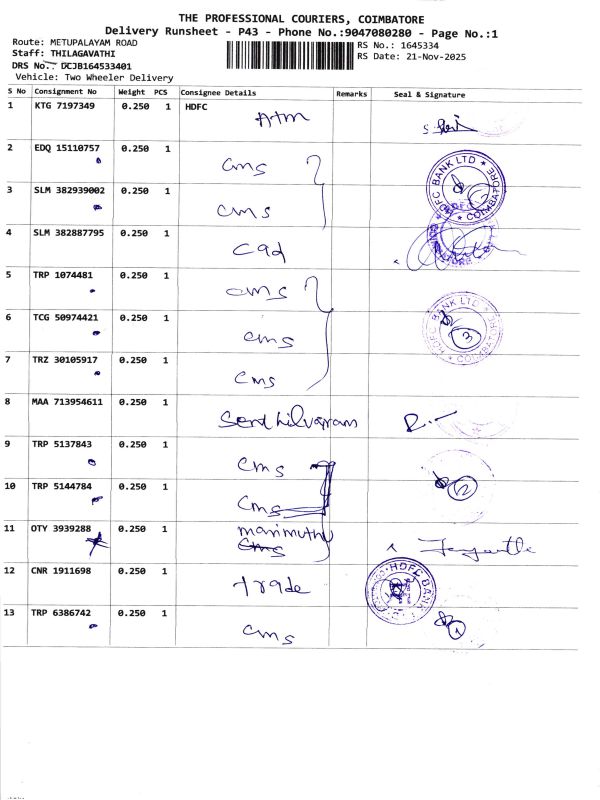 THE PROFESSIONAL COURIERS, COIMBATORE
Delivery Runsheet - P43 - Phone No.:9047080280 - Page No.:1
Route: METUPALAYAM ROAD
RS No.: 1645334
Staff: THILAGAVATHI
RS Date: 21-Nov-2025
DRS No.: DCJB164533401
Vehicle: Two Wheeler Delivery
S No Consignment No Weight PCS Consignee Details Remarks Seal & Signature
1 KTG 7197349 0.250 1 HDFC
ATM
2 EDQ 15110757 0.250 1
cms
HDFC BANK LTD COIMBATORE
3 SLM 382939002 0.250 1
cms
4 SLM 382887795 0.250 1
cad
5 TRP 1074481 0.250 1
cms
HDFC BANK LTD COIMBATORE
6 TCG 50974421 0.250 1
cms
3
7 TRZ 30105917 0.250 1
cms
8 MAA 713954611 0.250 1
Senthilvagram
9 TRP 5137843 0.250 1
cms
10 TRP 5144784 0.250 1
cms
2
11 OTY 3939288 0.250 1
marimuthu
cms
12 CNR 1911698 0.250 1
trade
HDFC BANK
13 TRP 6386742 0.250 1
cms
1